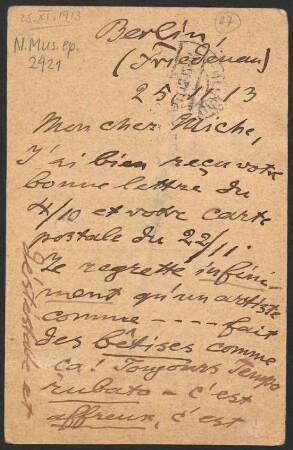 25. XI. 1913
27
N. Mus. ep.
2921
Berlin,
(Friedenau)
25/11 13
Mon cher Miche,
J'ai bien reçu votre
bonne lettre du
4/10 et votre carte
postale du 22/11.
Je regrette infini-
ment qu'un artiste
comme ---- fait
des bêtises comme
ça! Toujours Tempo
rubato - c'est
affreux, c'est
détestable et